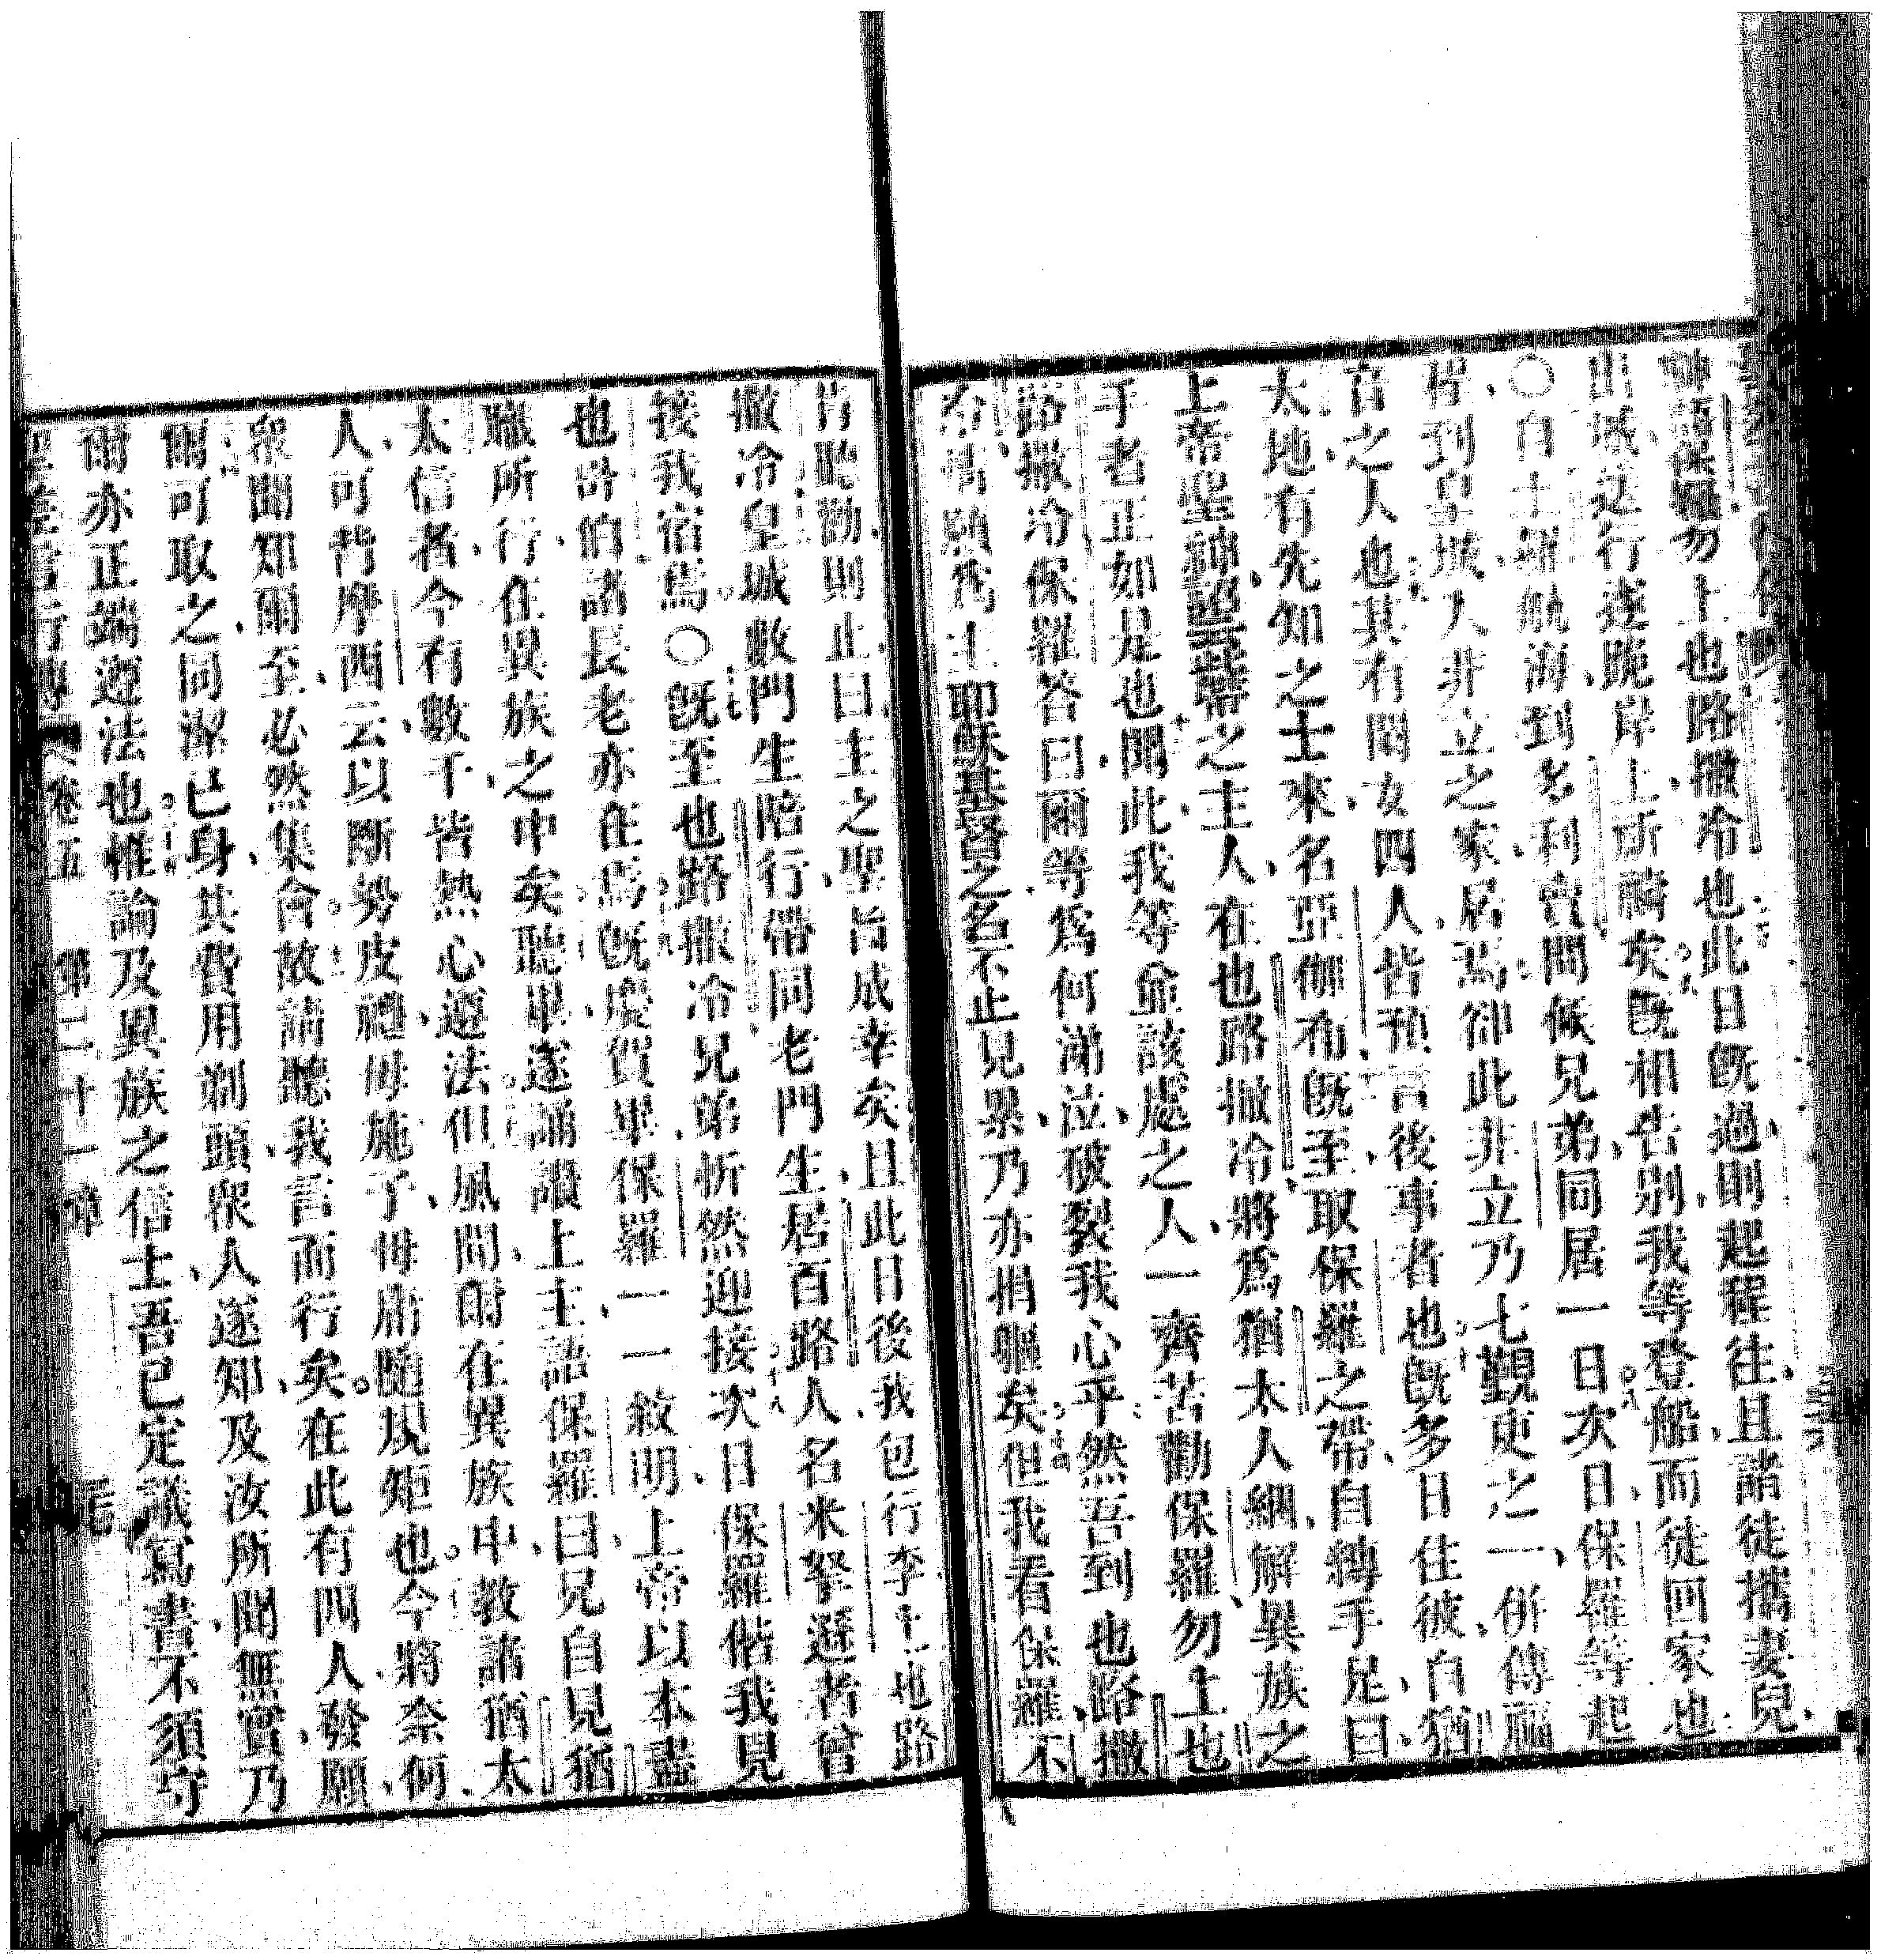 神語保羅勿上也路撒冷也此日既過則起程往且諸徒攜妻兒
出城送行遂跪岸上所禱矣既相告別我等登船而徒回家也
〇自土羅航海到多利買問候兄弟同居一日次日保羅等起
皆到皇城入非立之家居焉卻此非立乃七觀吏之一併傳福
音之人也其有閨女四人皆預言後事者也既多日住彼自猶
太地有先知之士來名亞伽布既至取保羅之帶自縛手足曰
上帝聖神曰帶之主人在也路撒冷將爲猶太人綑解異族之
手者正如是也聞此我等僉該處之人一齊苦勸保羅勿上也
路撒冷保羅答曰爾等爲何涕泣破裂我心乎然吾到也路撒
冷情願爲主耶穌基督之名不止見累乃亦捐軀矣但我看保羅不
肯聽勸則止曰主之聖旨成幸矣且此日後我包行李上也路
撒冷皇城數門生陪行帶同老門生居百路人名米拏遜者曾
接我宿焉〇既至也路撒冷兄弟忻然迎接次日保羅偕我見
也哥伯諸長老亦在焉既慶賀畢保羅一一敘明上帝以本盡
職所行在異族之中矣聽畢遂誦讚上主語保羅曰兄自見猶
太信者今有數千皆熱心遵法但風聞爾在異族中教諸猶太
人可背摩西云以斷勢皮禮毋施子毋庸隨規矩也今將奈何
眾聞知爾至必然集會故請聽我言而行矣在此有四人發願
爾可取之同潔己身其費用剃頭眾人遂知及汝所聞無實乃
爾亦正端遵法也惟論及異族之信士吾已定議寫書不須守
聖差言行傳 卷五 第二十一章